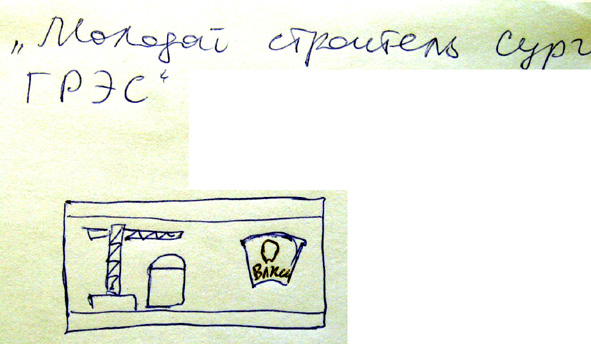 „Молодой строитель Сург
ГРЭС“
ВЛКСМ